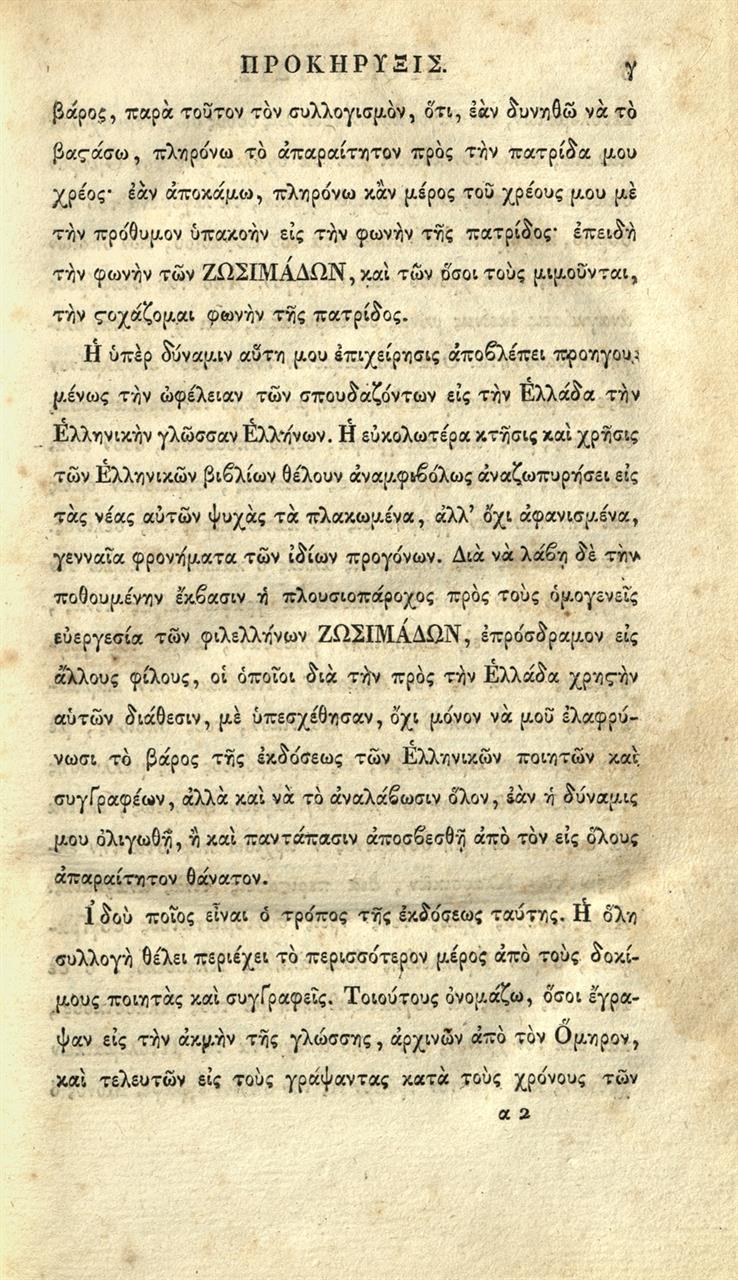 ΠΡΟΚΗΡΥΞΙΣ. γ
βάρος, παρὰ τοῦτον τὸν συλλογισμὸν, ὅτι, ἐὰν δυνηθῶ νὰ τὸ
βαϛάσω, πληρόνω τὸ ἀπαραίτητον πρὸς τὴν πατρίδα μου
χρέος· ἐὰν ἀποκάμω, πληρόνω κᾂν μέρος τοῦ χρέους μου μὲ
τὴν πρόθυμον ὑπακοὴν εἰς τὴν φωνὴν τῆς πατρίδος· ἐπειδὴ
τὴν φωνὴν τῶν ΖΩΣΙΜΆΔΩΝ, καὶ τῶν ὅσοι τοὺς μιμοῦνται,
τὴν ϛοχάζομαι φωνὴν τῆς πατρίδος.
Ἡ ὑπὲρ δύναμιν αὕτη μου ἐπιχείρησις ἀποϐλέπει προηγου-
μένως τὴν ὠφέλειαν τῶν σπουδαζόντων εἰς τὴν Ἑλλάδα τὴν
Ἑλληνικὴν γλῶσσαν Ἑλλήνων. Ἡ εὐκολωτέρα κτῆσις καὶ χρῆσις
τῶν Ἑλληνικῶν βιϐλίων θέλουν ἀναμφιϐόλως ἀναζωπυρήσει εἰς
τὰς νέας αὐτῶν ψυχὰς τὰ πλακωμένα, ἀλλ' ὄχι ἀφανισμένα,
γενναῖα φρονήματα τῶν ἰδίων προγόνων. Διὰ νὰ λάϐῃ δὲ τὴν
ποθουμένην ἔκϐασιν ἡ πλουσιοπάροχος πρὸς τοὺς ὁμογενεῖς
εὐεργεσία τῶν φιλελλήνων ΖΩΣΙΜΆΔΩΝ, ἐπρόσδραμον εἰς
ἄλλους φίλους, οἱ ὁποῖοι διὰ τὴν πρὸς τὴν Ἑλλάδα χρηϛὴν
αὑτῶν διάθεσιν, μὲ ὑπεσχέθησαν, ὄχι μόνον νὰ μοῦ ἐλαφρύ-
νωσι τὸ βάρος τῆς ἐκδόσεως τῶν Ἑλληνικῶν ποιητῶν καὶ
συγγραφέων, ἀλλὰ καὶ νὰ τὸ ἀναλάϐωσιν ὅλον, ἐὰν ἡ δύναμις
μου ὀλιγωθῇ, ἢ καὶ παντάπασιν ἀποσϐεσθῇ ἀπὸ τὸν εἰς ὅλους
ἀπαραίτητον θάνατον.
Ἰδοὺ ποῖος εἶναι ὁ τρόπος τῆς ἐκδόσεως ταύτης. Ἡ ὅλη
συλλογὴ θέλει περιέχει τὸ περισσότερον μέρος ἀπὸ τοὺς δοκί-
μους ποιητὰς καὶ συγγραφεῖς. Τοιούτους ὀνομάζω, ὅσοι ἔγρα-
ψαν εἰς τὴν ἀκμὴν τῆς γλώσσης, ἀρχινῶν ἀπὸ τὸν Ὅμηρον,
καὶ τελευτῶν εἰς τοὺς γράψαντας κατὰ τοὺς χρόνους τῶν
α 2